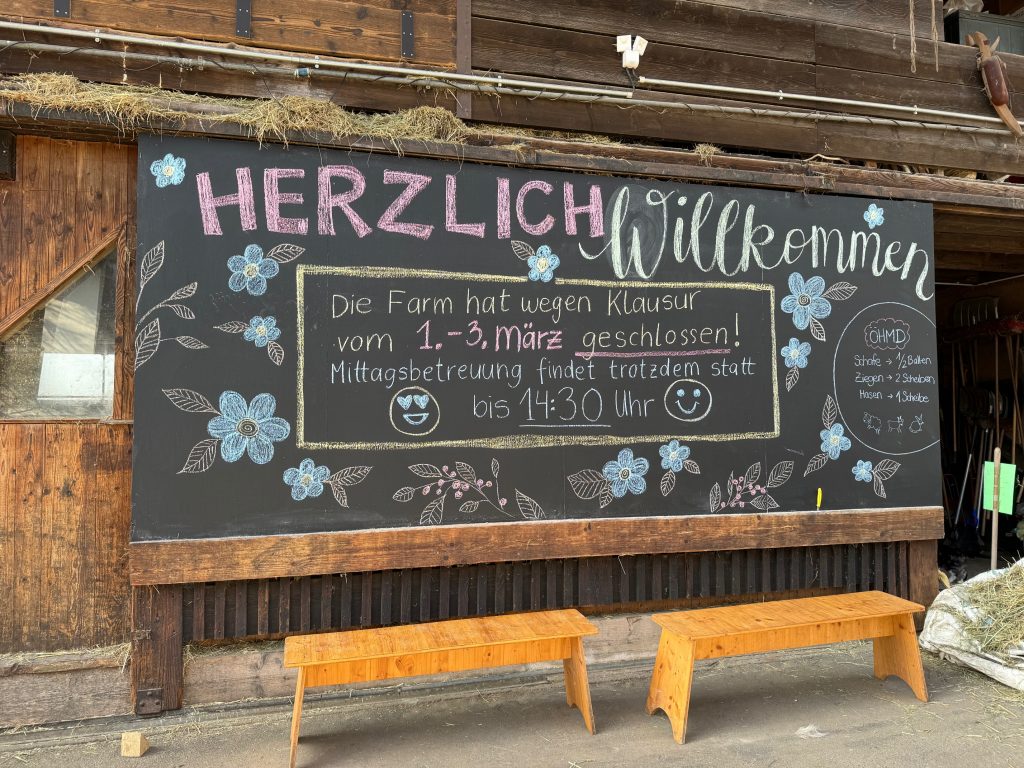 HERZLICH Willkommen
Die Farm hat wegen Klausur
vom 1.-3. März geschlossen!
Mittagsbetreuung findet trotzdem statt
bis 14:30 Uhr
ÖHMD
Schafe → 1/2 Ballen
Ziegen → 2 Scheiben
Hasen → 1 Scheibe